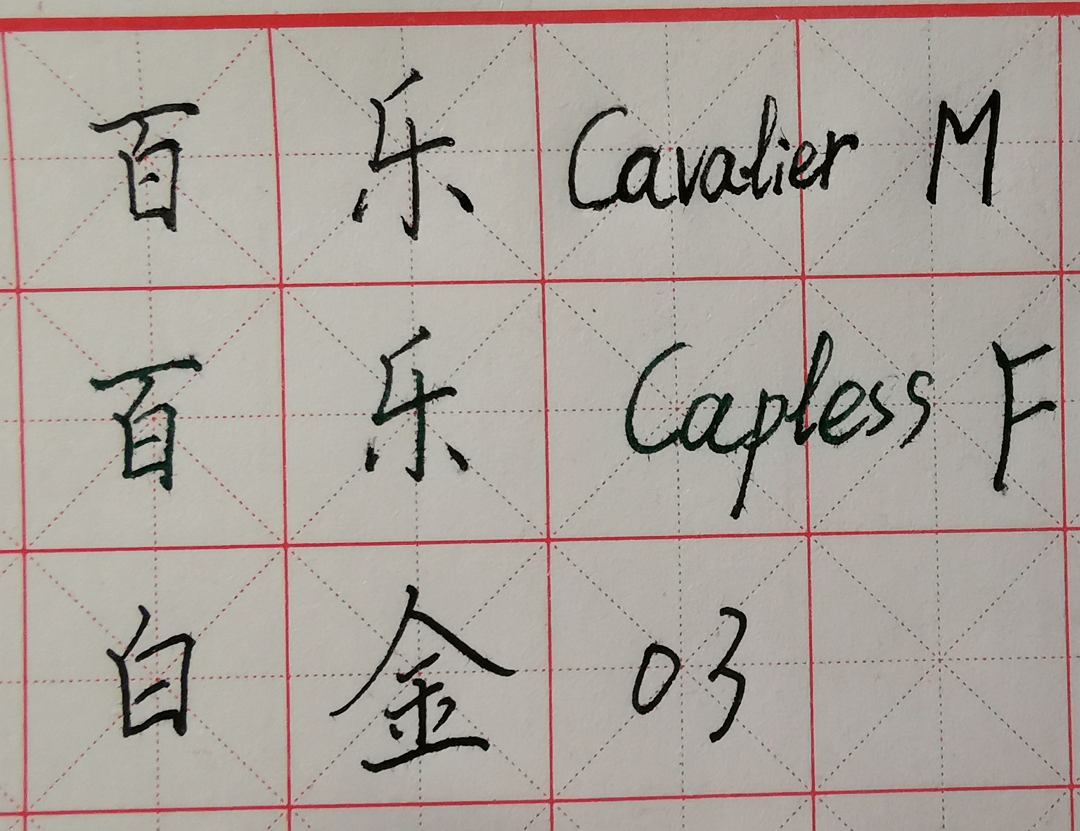 百乐 Cavalier M
百乐 Capless F
白金 03